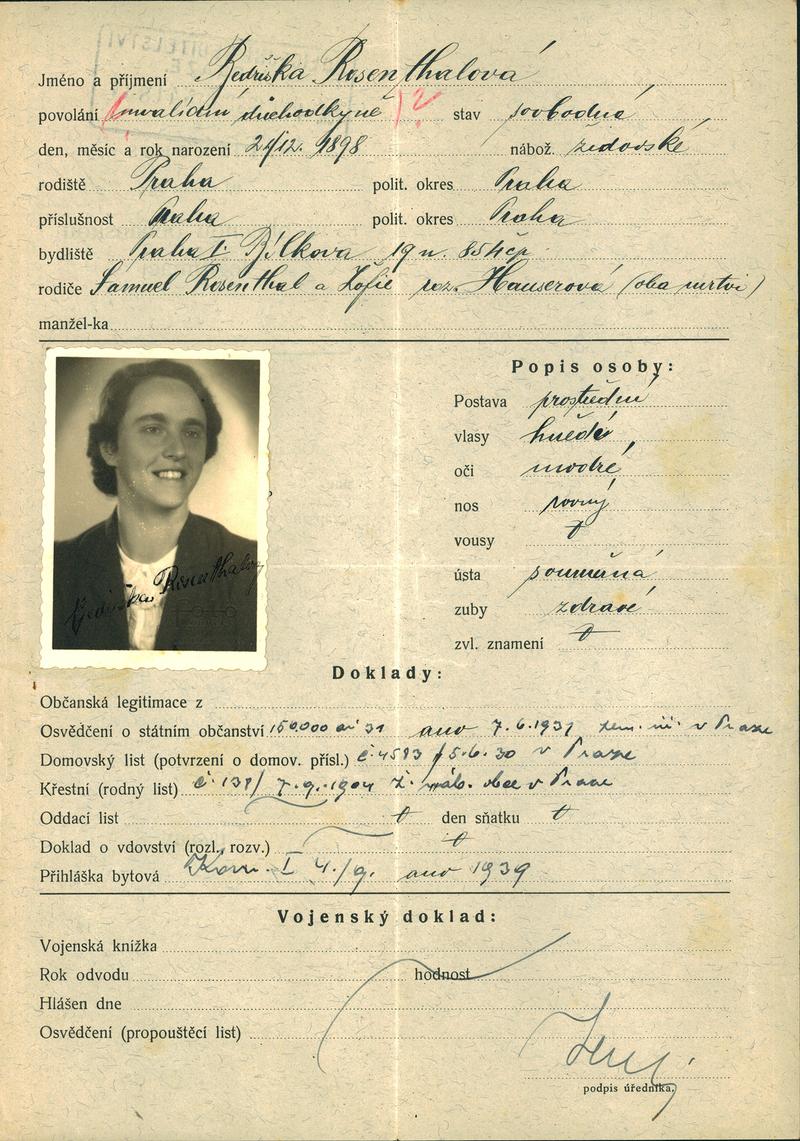 Jméno a příjmení Bedřiška Rosenthalová
povolání invalidní důchodkyně ) ? stav svobodná
den, měsíc a rok narození 21/12. 1898 nábož. židovské
rodiště Praha polit. okres Praha
příslušnost Praha polit. okres Praha
bydliště Praha I. Bílkova 19 n. 854 čp.
rodiče Samuel Rosenthal a Žofie roz. Hauserová (oba mrtvi)
manžel-ka
Popis osoby:
Postava prostřední
vlasy hnědé
oči modré
nos rovný
vousy
ústa souměrná
zuby zdravé
zvl. znamení
Bedřiška Rosenthalová
FOTO
Doklady:
Občanská legitimace z
Osvědčení o státním občanství 150.000 ai 31 ano 7.6.1931 zem. úř. v Praze
Domovský list (potvrzení o domov. přísl.) č. 4583 / 5.6.30 v Praze
Křestní (rodný list) č. 138/ 7.9.1904 ž. náb. obce v Praze
Oddací list den sňatku
Doklad o vdovství (rozl., rozv.)
Přihláška bytová Kom. I 4./9. ano 1939
Vojenský doklad:
Vojenská knížka
Rok odvodu hodnost
Hlášen dne
Osvědčení (propouštěcí list)
podpis úředníka.